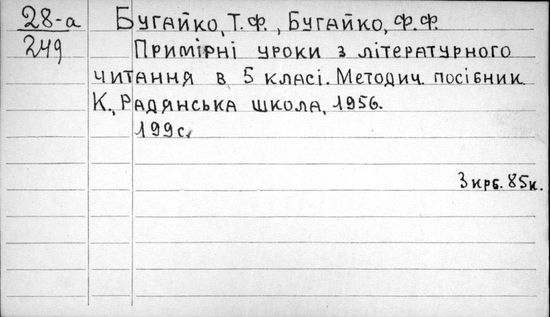 28-а
249
Бугайко, Т.Ф., Бугайко, Ф.Ф.
Примірні уроки з літературного
читання в 5 класі. Методич. посібник
К., Радянська школа, 1956.
199с.
3 крб. 85к.